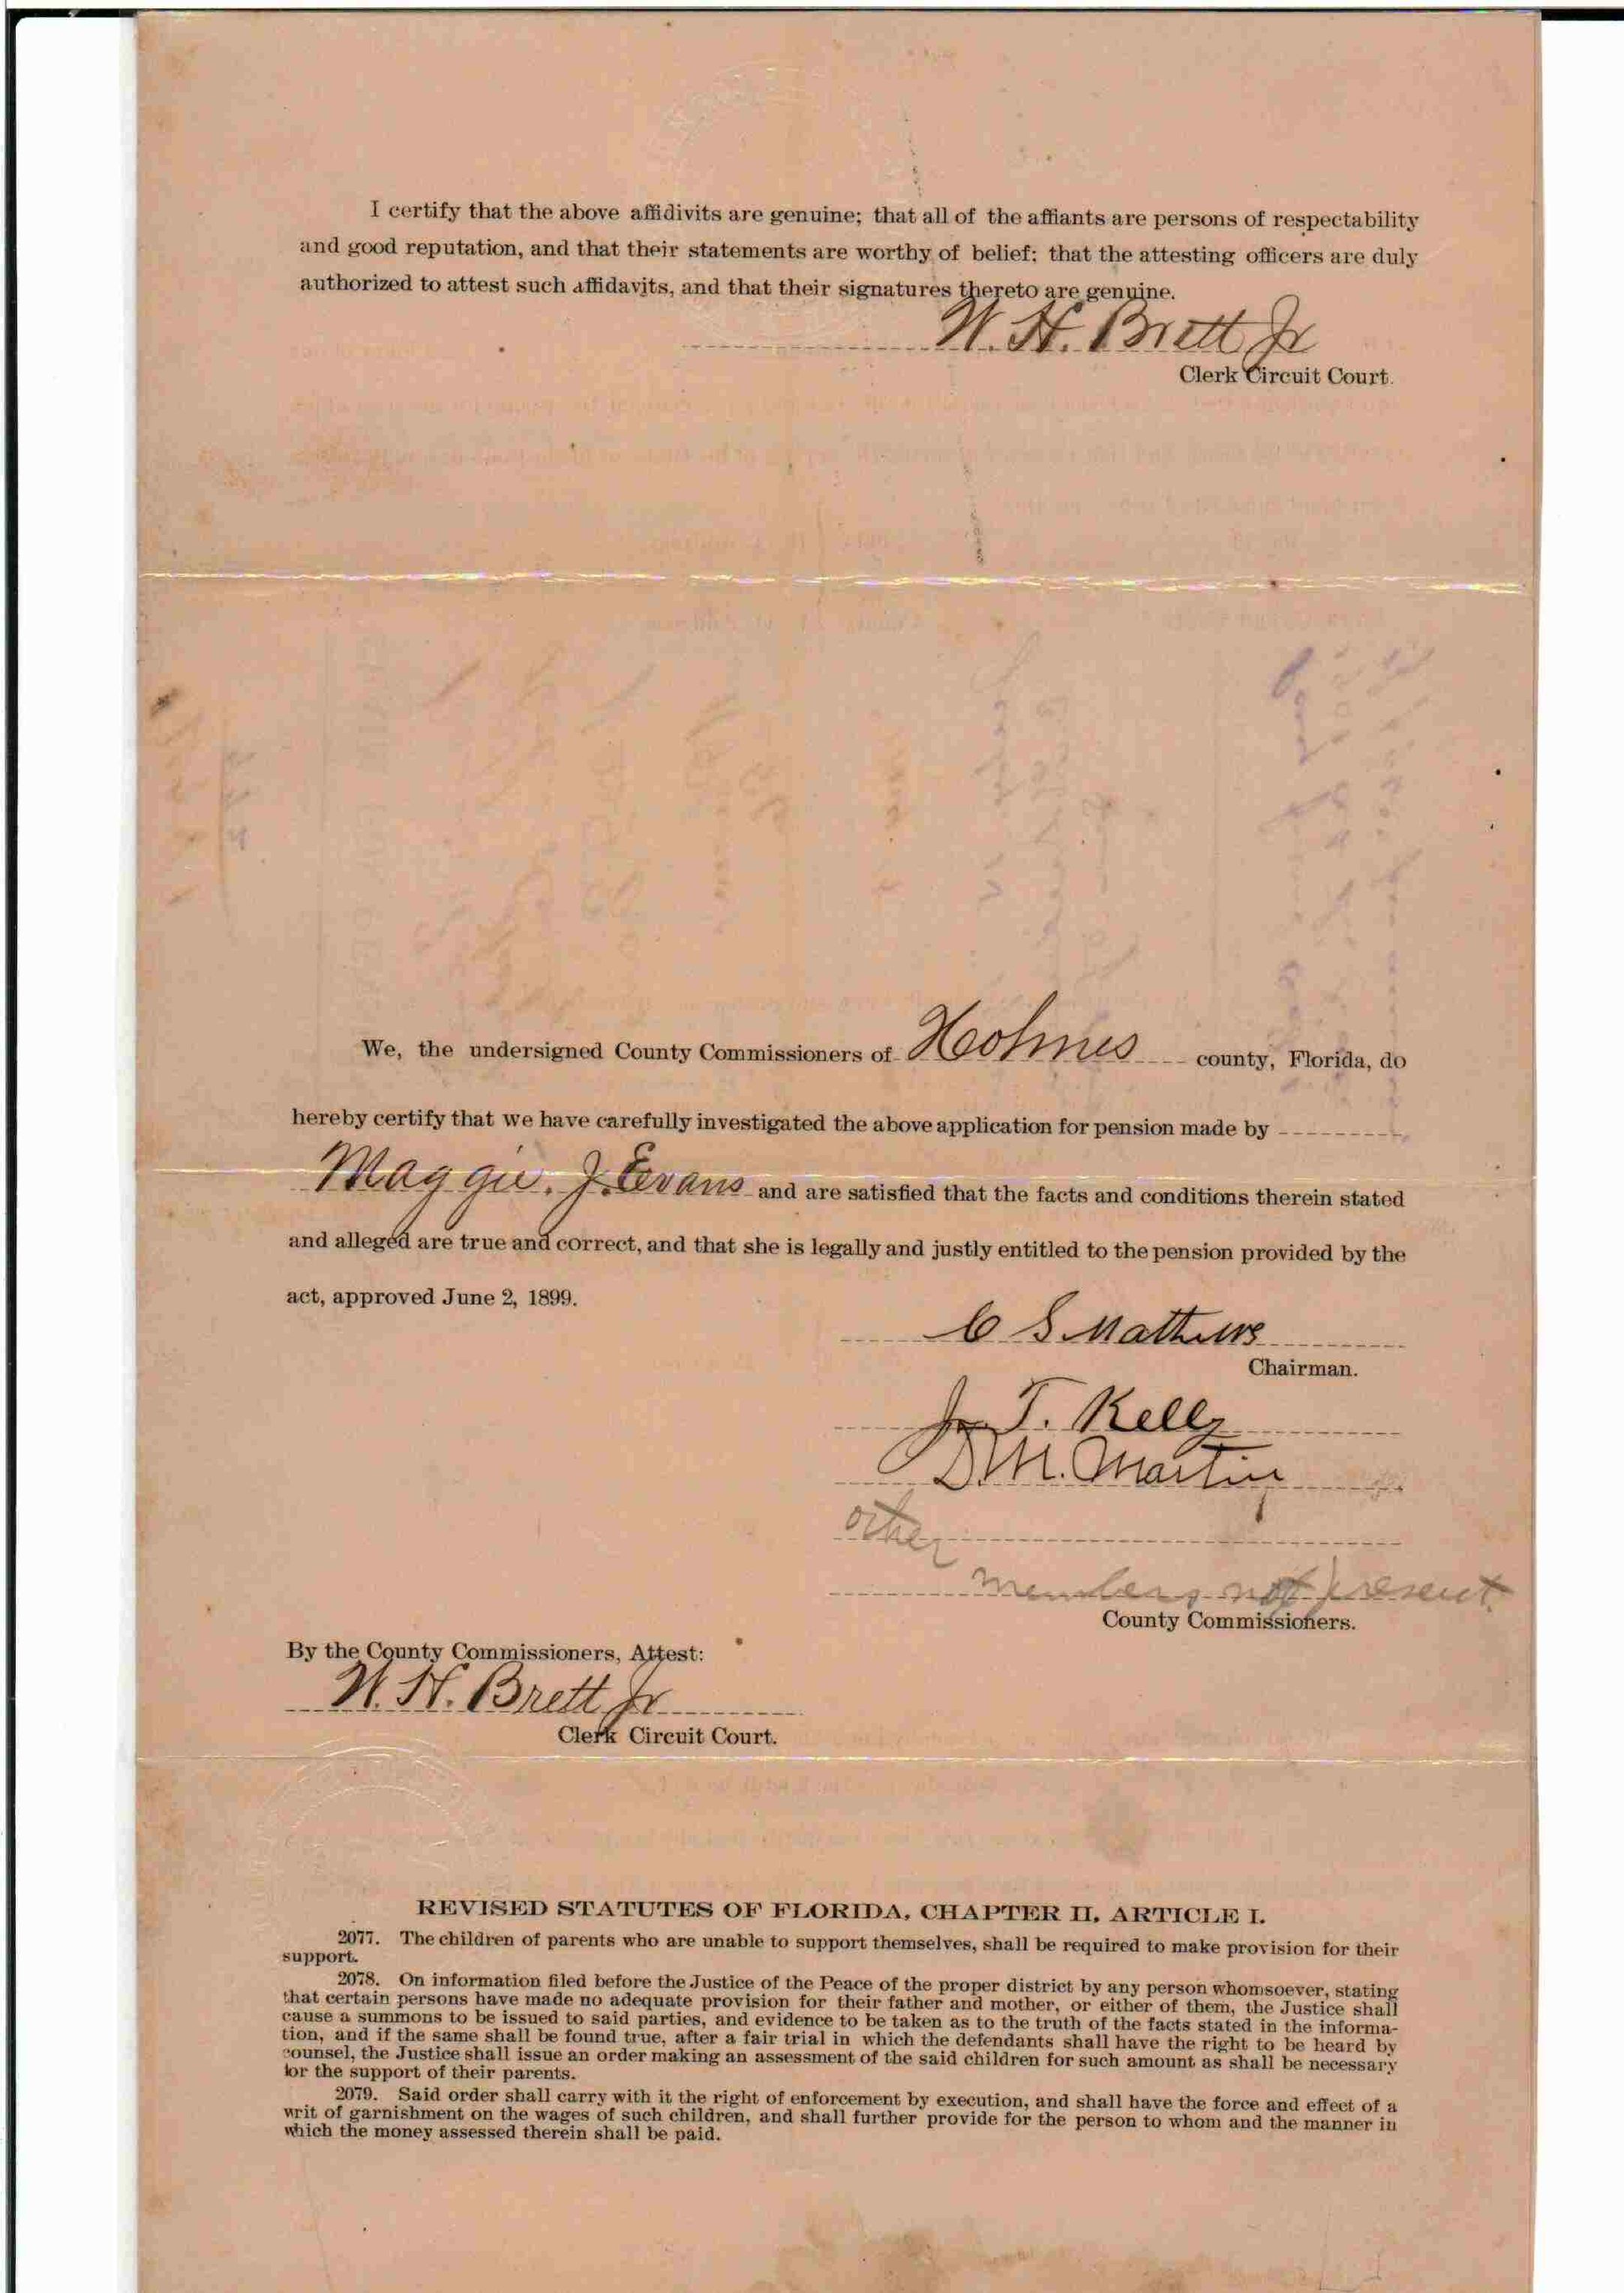 I certify that the above affidivits are genuine; that all of the affiants are persons of respectability
and good reputation, and that their statements are worthy of belief: that the attesting officers are duly
authorized to attest such affidavits, and that their signatures thereto are genuine.
W. H. Brett Jr
Clerk Circuit Court.
We, the undersigned County Commissioners of Holmes county, Florida, do
hereby certify that we have carefully investigated the above application for pension made by
Maggie. J. Evans and are satisfied that the facts and conditions therein stated
and alleged are true and correct, and that she is legally and justly entitled to the pension provided by the
act, approved June 2, 1899.
C S Mathews
Chairman.
T. Kelly
D. M. Martin
other
members not present
County Commissioners.
By the County Commissioners, Attest:
W. H. Brett Jr
Clerk Circuit Court.
REVISED STATUTES OF FLORIDA, CHAPTER II, ARTICLE I.
2077. The children of parents who are unable to support themselves, shall be required to make provision for their
support.
2078. On information filed before the Justice of the Peace of the proper district by any person whomsoever, stating
that certain persons have made no adequate provision for their father and mother, or either of them, the Justice shall
cause a summons to be issued to said parties, and evidence to be taken as to the truth of the facts stated in the informa-
tion, and if the same shall be found true, after a fair trial in which the defendants shall have the right to be heard by
counsel, the Justice shall issue an order making an assessment of the said children for such amount as shall be necessary
for the support of their parents.
2079. Said order shall carry with it the right of enforcement by execution, and shall have the force and effect of a
writ of garnishment on the wages of such children, and shall further provide for the person to whom and the manner in
which the money assessed therein shall be paid.